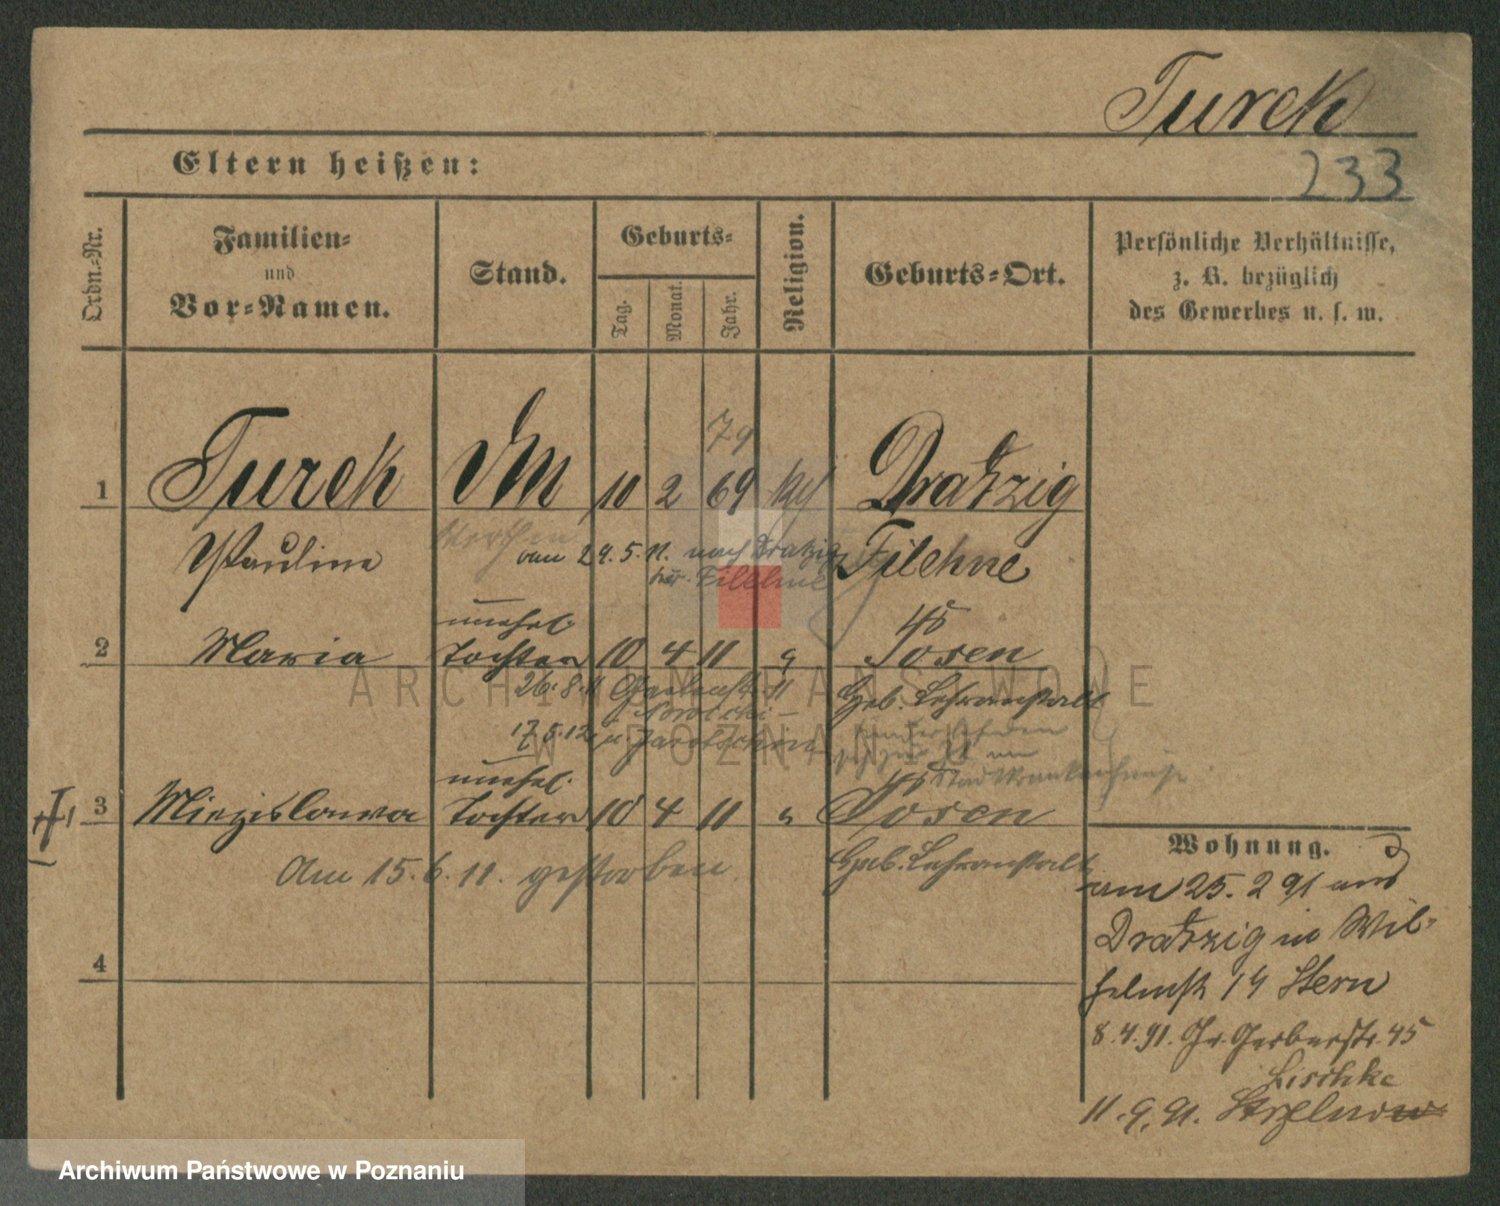 Turek
233
Eltern heißen:
Ordn.-Nr.
Familien-
und
Vor-Namen.
Stand.
Geburts-
Tag.
Monat.
Jahr.
Religion.
Geburts-Ort.
Persönliche Verhältnisse,
z. B. bezüglich
des Gewerbes u. s. w.
79
1 Turek 10 2 69 Dratzig
Pauline Filehne
am 29.5.11. nach Dratzig
Filehne
unehel.
2 Maria Tochter 10 4 11 Posen
26.8.11 Geb. Lehranstalt
17.5.12
unehel.
3 Miezislawa Tochter 10 4 11 Posen
Am 15.6.11. gestorben Geb. Lehranstalt
4
Wohnung.
am 25. 2 91 aus
Dratzig in Wil-
helmstr 14 Stern
8.4.91. Gr. Gerberstr. 45
Lischke
11.9.91. Strzelno
ARCHIWUM PAŃSTWOWE
W POZNANIU
Archiwum Państwowe w Poznaniu